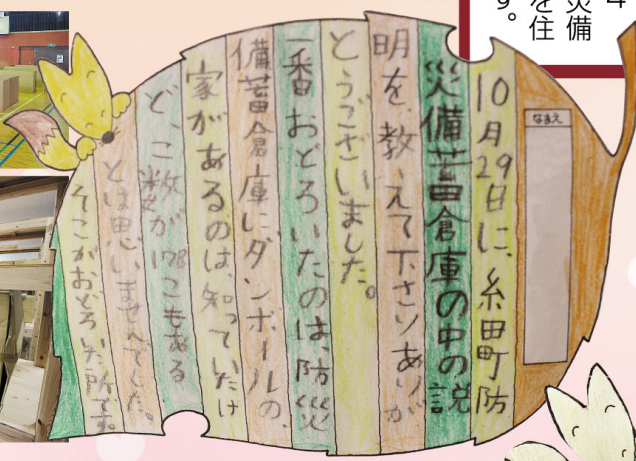 災備
を住
す。
なまえ
10月29日に、糸田町防
災備蓄倉庫の中の説
明を、教えて下さりありが
とうございました。
一番おどろいたのは、防災
備蓄倉庫にダンボールの、
家があるのは、知っていたけ
ど、こ数が178こもある
とは思いませんでした。
そこがおどろいた所です。